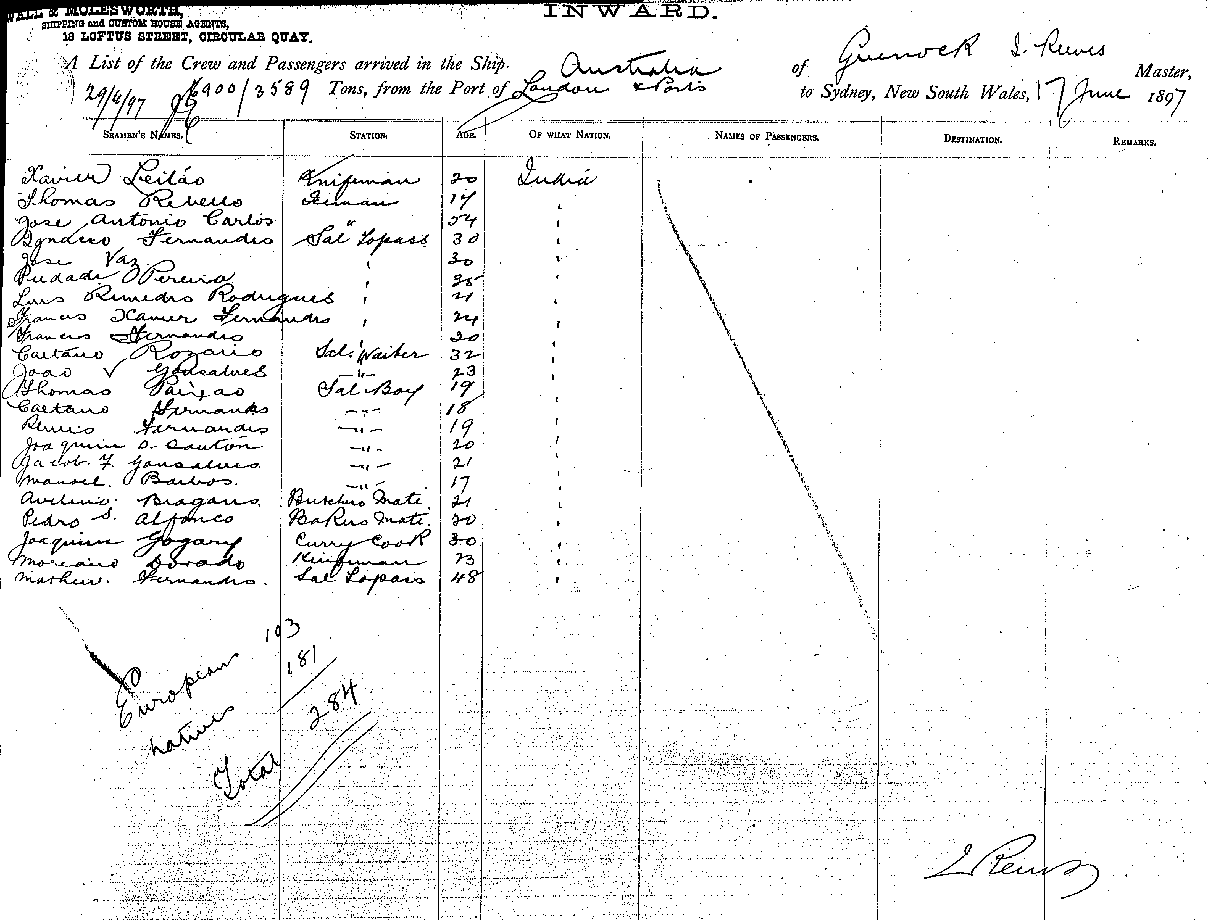 INWARD.
WALL & MOLESWORTH,
SHIPPING and CUSTOM HOUSE AGENTS,
18 LOFTUS STREET, CIRCULAR QUAY.
A List of the Crew and Passengers arrived in the Ship Australia of Greenock J. Reeves Master,
29/4/97 6900/3589 Tons, from the Port of London & Ports to Sydney, New South Wales, 17 June 1897
SEAMEN'S NAMES. STATION. AGE. OF WHAT NATION. NAMES OF PASSENGERS. DESTINATION. REMARKS.
Xavier Leitão Knifeman 20 India
Thomas Rebello 17 "
Jose Antonio Carlos " 54 "
Fernandis Sal Topass 30 "
Jose Vaz " 30 "
Piedade Pereira "
Luis Remedio Rodrigues " 21 "
Francis Xavier Fernandis " 24 "
Francis Fernandis 20 "
Caetano Rozario Sal Waiter 32 "
Joao V Gonsalves -"- 23 "
Thomas Paixao Sal Boy 19 "
Caetano Fernands -"- 18 "
Fernandis -"- 19 "
Joaquim -"- 20 "
Jacob. F. Gonsalves -"- 21 "
Manoel. Barbos. -"- 17 "
Bragans. Butchers Mate. 21 "
Pedro S. Alfonco Bakers Mate. 30 "
Joaquim Curry Cook 30 "
Dorado Knifeman 23 "
Mathew. Fernandis. Sal Topass 48 "
European 103
natives 181
Total 284
J Reeves